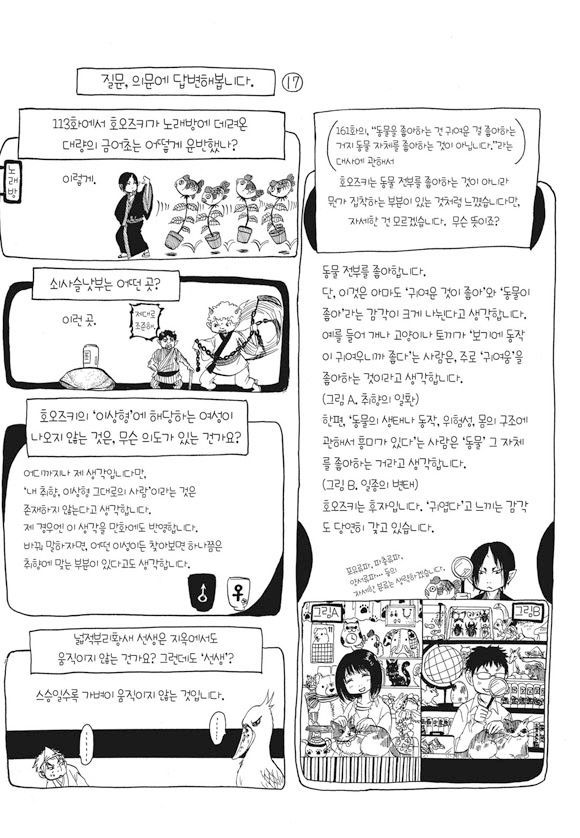 질문, 의문에 답변해봅니다.
17
113화에서 호오즈키가 노래방에 데려온
대량의 금어초는 어떻게 운반했나?
노래방
이렇게.
쇠사슬낫부는 어떤 곳?
이런 곳.
제대로
조준해!
호오즈키의 '이상형'에 해당하는 여성이
나오지 않는 것은, 무슨 의도가 있는 건가요?
어디까지나 제 생각입니다만,
'내 취향, 이상형 그대로의 사람'이라는 것은
존재하지 않는다고 생각합니다.
제 경우엔 이 생각을 만화에도 반영합니다.
바꿔 말하자면, 어떤 이성이든 찾아보면 하나쯤은
취향에 맞는 부분이 있다고도 생각합니다.
넓적부리황새 선생은 지옥에서도
움직이지 않는 건가요? 그런데도 '선생'?
스승일수록 가벼이 움직이지 않는 것입니다.
161화의, "동물을 좋아하는 건 귀여운 걸 좋아하는
거지 동물 자체를 좋아하는 것이 아닙니다."라는
대사에 관해서
호오즈키는 동물 전부를 좋아하는 것이 아니라
뭔가 집착하는 부분이 있는 것처럼 느꼈습니다만,
자세한 건 모르겠습니다. 무슨 뜻이죠?
동물 전부를 좋아합니다.
단, 이것은 아마도 '귀여운 것이 좋아'와 '동물이
좋아'라는 감각이 크게 나뉜다고 생각합니다.
예를 들어 개나 고양이나 토끼가 '보기에 동작
이 귀여우니까 좋다'는 사람은, 주로 '귀여움'을
좋아하는 것이라고 생각합니다.
(그림 A. 취향의 일환)
한편, '동물의 생태나 동작, 위험성, 몸의 구조에
관해서 흥미가 있다'는 사람은 '동물' 그 자체
를 좋아하는 거라고 생각합니다.
(그림 B. 일종의 변태)
호오즈키는 후자입니다. '귀엽다'고 느끼는 감각
도 당연히 갖고 있습니다.
포유류파, 파충류파,
양서류파… 등의
자세한 분류는 생략하겠습니다.
그림A
그림B